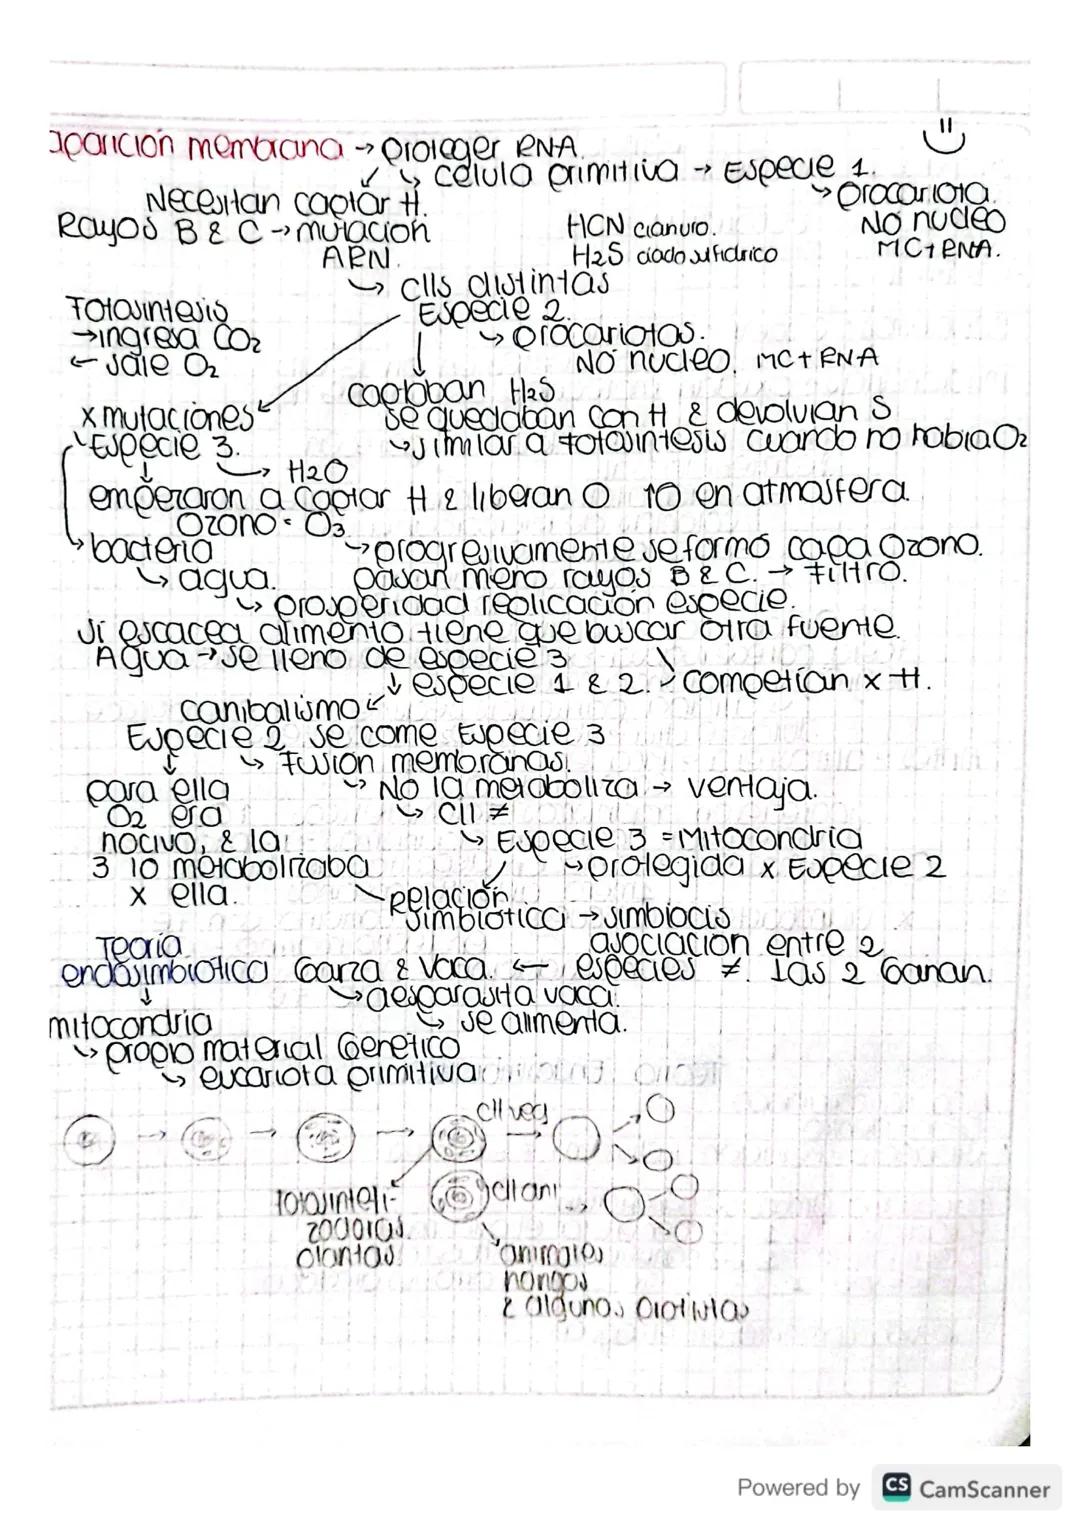 aparición membrana → proteger RNA.
↳ célula primitiva → Especie 1.
↳ procariota.
No nucleo
MC+RNA.
Necesitan captar H.
Rayos B & C → mutación
ARN.
HCN cianuro.
H2S ciado sulfidrico
↳ clls distintas
Especie 2.
↳ procariotas.
NO nucleo. MC+RNA
Fotosintesis
→ ingresa CO2
← sale O2
captaban H2S
se quedaban con H & devolvian S
↳ similar a fotosintesis cuando no habia O2
x mutaciones
Especie 3.
↳ H2O
empezaron a captar H & liberan O ↑O en atmosfera.
Ozono = O3
↳ progresivamente se formó capa Ozono.
pasan meno rayos B & C. → Filtro.
↳ bacteria
↳ agua.
↳ prosperidad replicación especie.
si escacea alimento tiene que buscar otra fuente.
Agua → se lleno de especie 3
↓ especie 1 & 2. competian x H.
canibalismo
Especie 2 se come Especie 3
↳ Fusion membranas.
↳ No la metaboliza → ventaja.
↳ cll ≠
↳ Especie 3 = Mitocondria
↳ protegida x Especie 2
para ella
O2 era
nocivo, & la
3 lo metabolizaba
x ella.
Relación
simbiotica → simbiocis
asociacion entre 2
especies ≠. Las 2 Ganan.
Garza & Vaca. ←
↳ desparasita vaca.
↳ se alimenta.
Teoria
endosimbiotica
↓
mitocondria
↳ propio material Genético
↳ eucariota primitiva
cll veg
cll ani
fotosinteti-
zadoras.
plantas.
animales
hongos
& algunos protistas
Powered by CS CamScanner